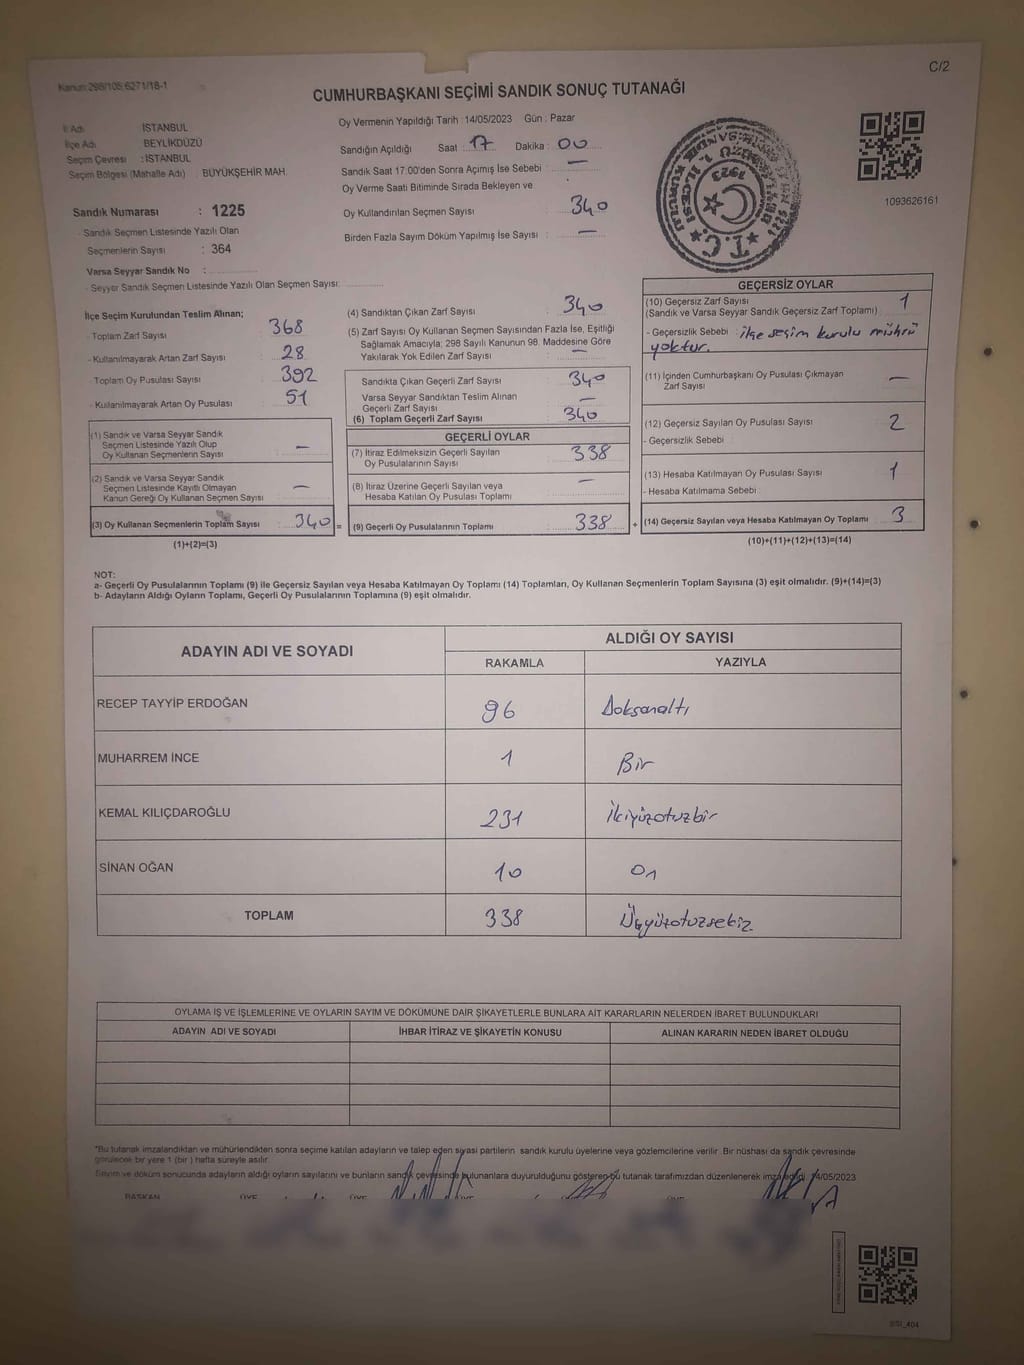 C/2
Kanun:298/105;6271/18-1
CUMHURBAŞKANI SEÇİMİ SANDIK SONUÇ TUTANAĞI
İl Adı İSTANBUL
İlçe Adı BEYLİKDÜZÜ
Seçim Çevresi : İSTANBUL
Seçim Bölgesi (Mahalle Adı) BÜYÜKŞEHİR MAH.
Sandık Numarası : 1225
- Sandık Seçmen Listesinde Yazılı Olan
Seçmenlerin Sayısı : 364
Varsa Seyyar Sandık No :
- Seyyar Sandık Seçmen Listesinde Yazılı Olan Seçmen Sayısı:
Oy Vermenin Yapıldığı Tarih : 14/05/2023 Gün : Pazar
Sandığın Açıldığı Saat : 17 Dakika : 00
Sandık Saat 17:00'den Sonra Açımış İse Sebebi : —
Oy Verme Saati Bitiminde Sırada Bekleyen ve :
Oy Kullandırılan Seçmen Sayısı 340
Birden Fazla Sayım Döküm Yapılmış İse Sayısı : —
T.C.
1093626161
İlçe Seçim Kurulundan Teslim Alınan;
- Toplam Zarf Sayısı 368
- Kullanılmayarak Artan Zarf Sayısı 28
- Toplam Oy Pusulası Sayısı 392
- Kullanılmayarak Artan Oy Pusulası 51
(1) Sandık ve Varsa Seyyar Sandık
Seçmen Listesinde Yazılı Olup
Oy Kullanan Seçmenlerin Sayısı —
(2) Sandık ve Varsa Seyyar Sandık
Seçmen Listesinde Kayıtlı Olmayan
Kanun Gereği Oy Kullanan Seçmen Sayısı —
(3) Oy Kullanan Seçmenlerin Toplam Sayısı 340 =
(1)+(2)=(3)
(4) Sandıktan Çıkan Zarf Sayısı 340
(5) Zarf Sayısı Oy Kullanan Seçmen Sayısından Fazla İse, Eşitliği
Sağlamak Amacıyla; 298 Sayılı Kanunun 98. Maddesine Göre
Yakılarak Yok Edilen Zarf Sayısı —
Sandıkta Çıkan Geçerli Zarf Sayısı 340
Varsa Seyyar Sandıktan Teslim Alınan
Geçerli Zarf Sayısı —
(6) Toplam Geçerli Zarf Sayısı 340
GEÇERLİ OYLAR
(7) İtiraz Edilmeksizin Geçerli Sayılan
Oy Pusulalarının Sayısı 338
(8) İtiraz Üzerine Geçerli Sayılan veya
Hesaba Katılan Oy Pusulası Toplamı —
(9) Geçerli Oy Pusulalarının Toplamı 338 +
GEÇERSİZ OYLAR
(10) Geçersiz Zarf Sayısı 1
(Sandık ve Varsa Seyyar Sandık Geçersiz Zarf Toplamı)
- Geçersizlik Sebebi : ilçe seçim kurulu mührü
yoktur.
(11) İçinden Cumhurbaşkanı Oy Pusulası Çıkmayan
Zarf Sayısı —
(12) Geçersiz Sayılan Oy Pusulası Sayısı 2
- Geçersizlik Sebebi :
(13) Hesaba Katılmayan Oy Pusulası Sayısı 1
- Hesaba Katılmama Sebebi :
(14) Geçersiz Sayılan veya Hesaba Katılmayan Oy Toplamı 3
(10)+(11)+(12)+(13)=(14)
NOT:
a- Geçerli Oy Pusulalarının Toplamı (9) ile Geçersiz Sayılan veya Hesaba Katılmayan Oy Toplamı (14) Toplamları, Oy Kullanan Seçmenlerin Toplam Sayısına (3) eşit olmalıdır. (9)+(14)=(3)
b- Adayların Aldığı Oyların Toplamı, Geçerli Oy Pusulalarının Toplamına (9) eşit olmalıdır.
ADAYIN ADI VE SOYADI ALDIĞI OY SAYISI
RAKAMLA YAZIYLA
RECEP TAYYİP ERDOĞAN 96 Doksanaltı
MUHARREM İNCE 1 Bir
KEMAL KILIÇDAROĞLU 231 İkiyüzotuzbir
SİNAN OĞAN 10 On
TOPLAM 338 Üçyüzotuzsekiz
OYLAMA İŞ VE İŞLEMLERİNE VE OYLARIN SAYIM VE DÖKÜMÜNE DAİR ŞİKAYETLERLE BUNLARA AİT KARARLARIN NELERDEN İBARET BULUNDUKLARI
ADAYIN ADI VE SOYADI İHBAR İTİRAZ VE ŞİKAYETİN KONUSU ALINAN KARARIN NEDEN İBARET OLDUĞU
*Bu tutanak imzalandıktan ve mühürlendikten sonra seçime katılan adayların ve talep eden siyasi partilerin sandık kurulu üyelerine veya gözlemcilerine verilir. Bir nüshası da sandık çevresinde
görülecek bir yere 1 (bir) hafta süreyle asılır.
Sayım ve döküm sonucunda adayların aldığı oyların sayılarını ve bunların sandık çevresinde bulunanlara duyurulduğunu gösteren bu tutanak tarafımızdan düzenlenerek imza edildi. 14/05/2023
BAŞKAN ÜYE ÜYE ÜYE ÜYE